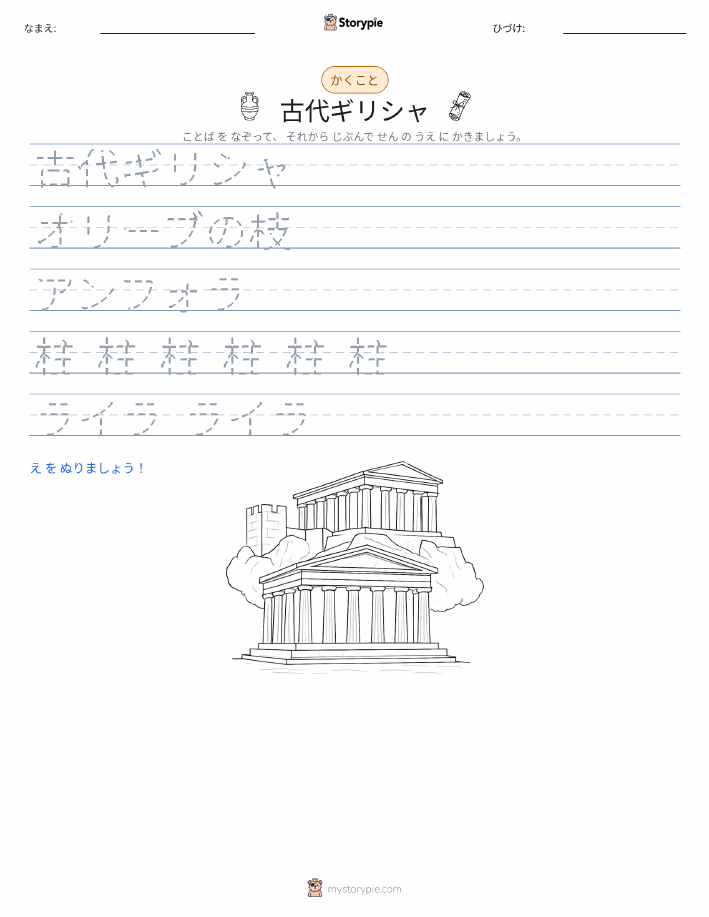 なまえ:
Storypie
ひづけ:
かくこと
古代ギリシャ
ことば を なぞって、 それから じぶんで せん の うえ に かきましょう。
古代ギリシャ
オリーブの枝
アンフォラ
柱 柱 柱 柱 柱 柱
ライラ ライラ
え を ぬりましょう！
mystorypie.com